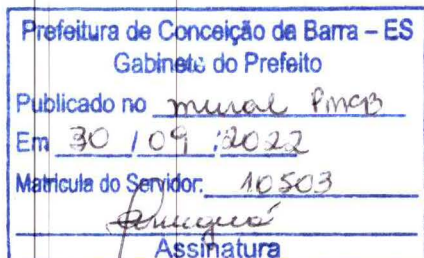 Prefeitura de Conceição da Barra – ES
Gabinete do Prefeito
Publicado no mural PMCB
Em 30 / 09 / 2022
Matrícula do Servidor: 10503
Assinatura